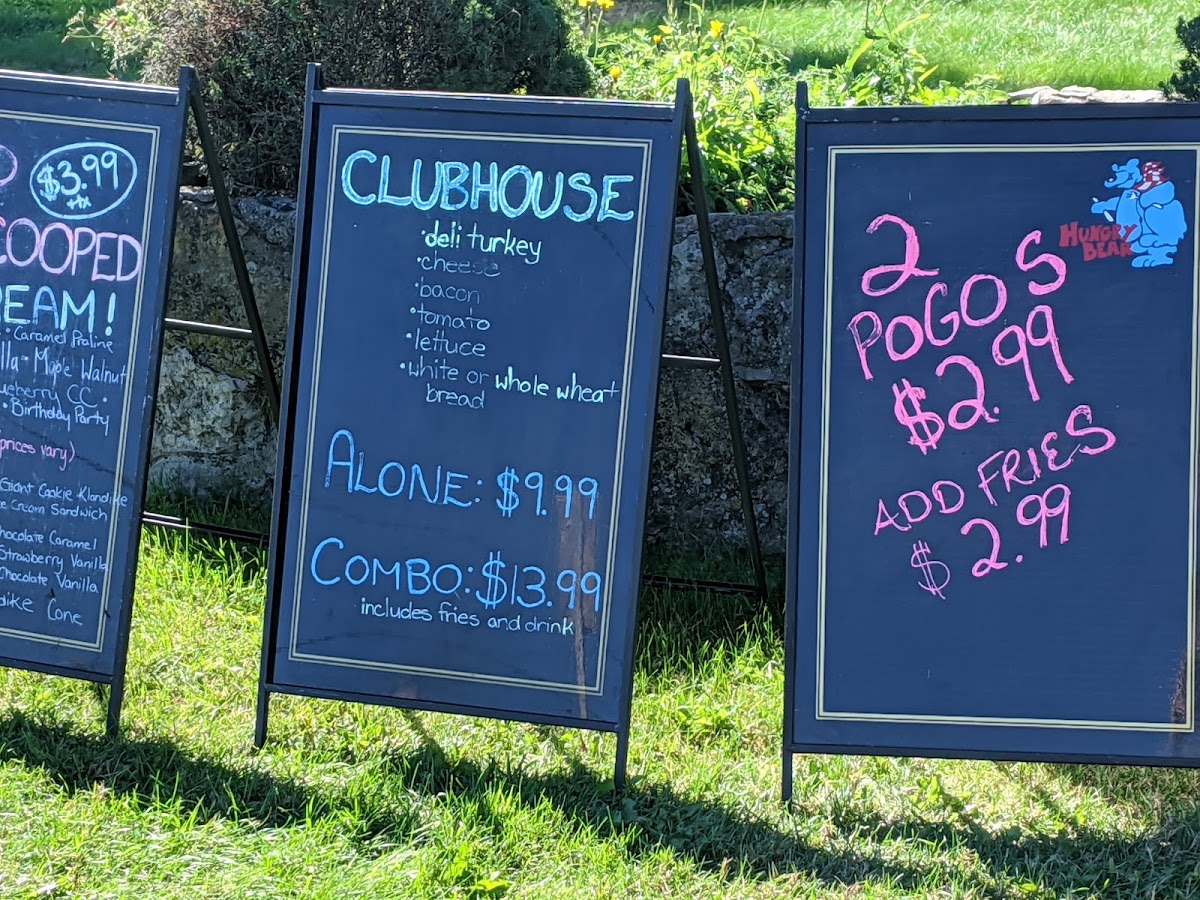 $3.99
+tx
COOPED
REAM!
Caramel Praline
Maple Walnut
CC •
• Birthday Party
prices vary)
Giant Cookie Klondike
Cream Sandwich
Chocolate Caramel
Strawberry Vanilla
Chocolate Vanilla
Cone
CLUBHOUSE
• deli turkey
• cheese
• bacon
• tomato
• lettuce
• white or whole wheat
bread
ALONE: $9.99
COMBO: $13.99
includes fries and drink
HUNGRY
BEAR
2
POGOS
$2.99
ADD FRIES
$2.99